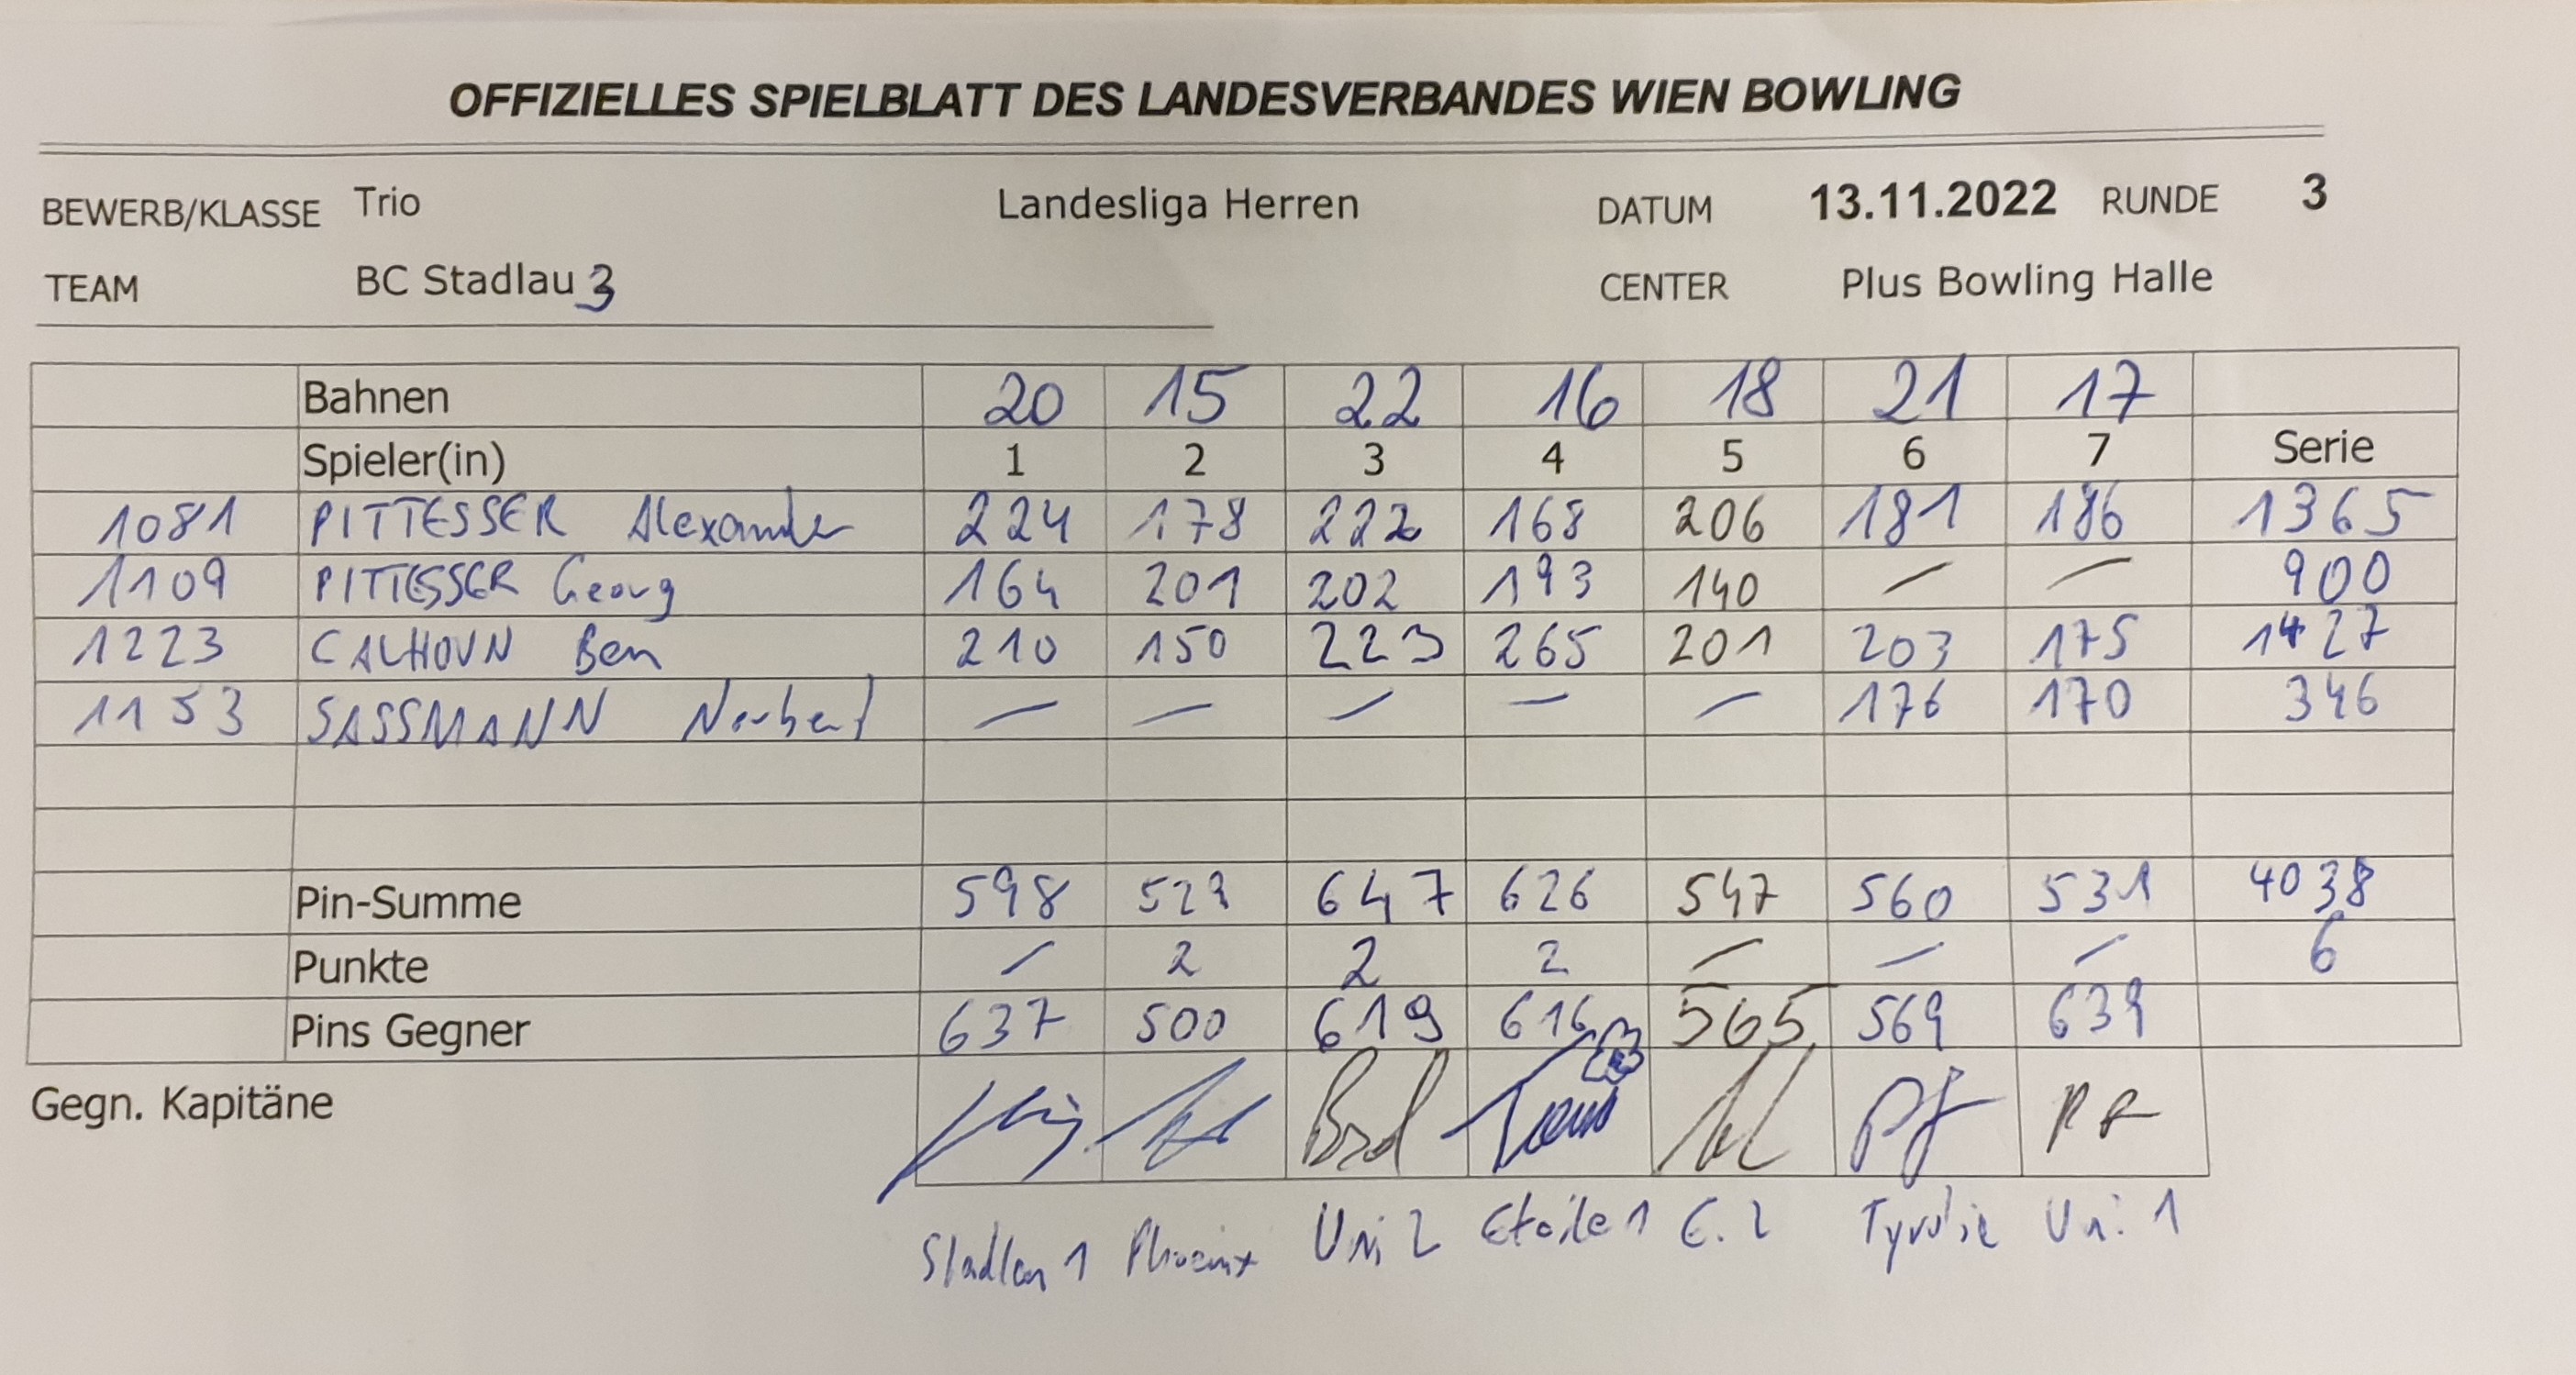 OFFIZIELLES SPIELBLATT DES LANDESVERBANDES WIEN BOWLING
BEWERB/KLASSE Trio Landesliga Herren DATUM 13.11.2022 RUNDE 3
TEAM BC Stadlau 3 CENTER Plus Bowling Halle
Bahnen 20 15 22 16 18 21 17
Spieler(in) 1 2 3 4 5 6 7 Serie
1081 PITTESSER Alexander 224 178 222 168 206 181 186 1365
1109 PITTESSER Georg 164 201 202 193 140 – – 900
1223 CALHOUN Ben 210 150 223 265 201 203 175 1427
1153 SASSMANN Norbert – – – – – 176 170 346
Pin-Summe 598 529 647 626 547 560 531 4038
Punkte – 2 2 2 – – – 6
Pins Gegner 637 500 619 616 565 569 639
Gegn. Kapitäne
Stadlau 1 Phoenix Uni 2 Etoile 1 E. 2 Tyrolia Uni 1